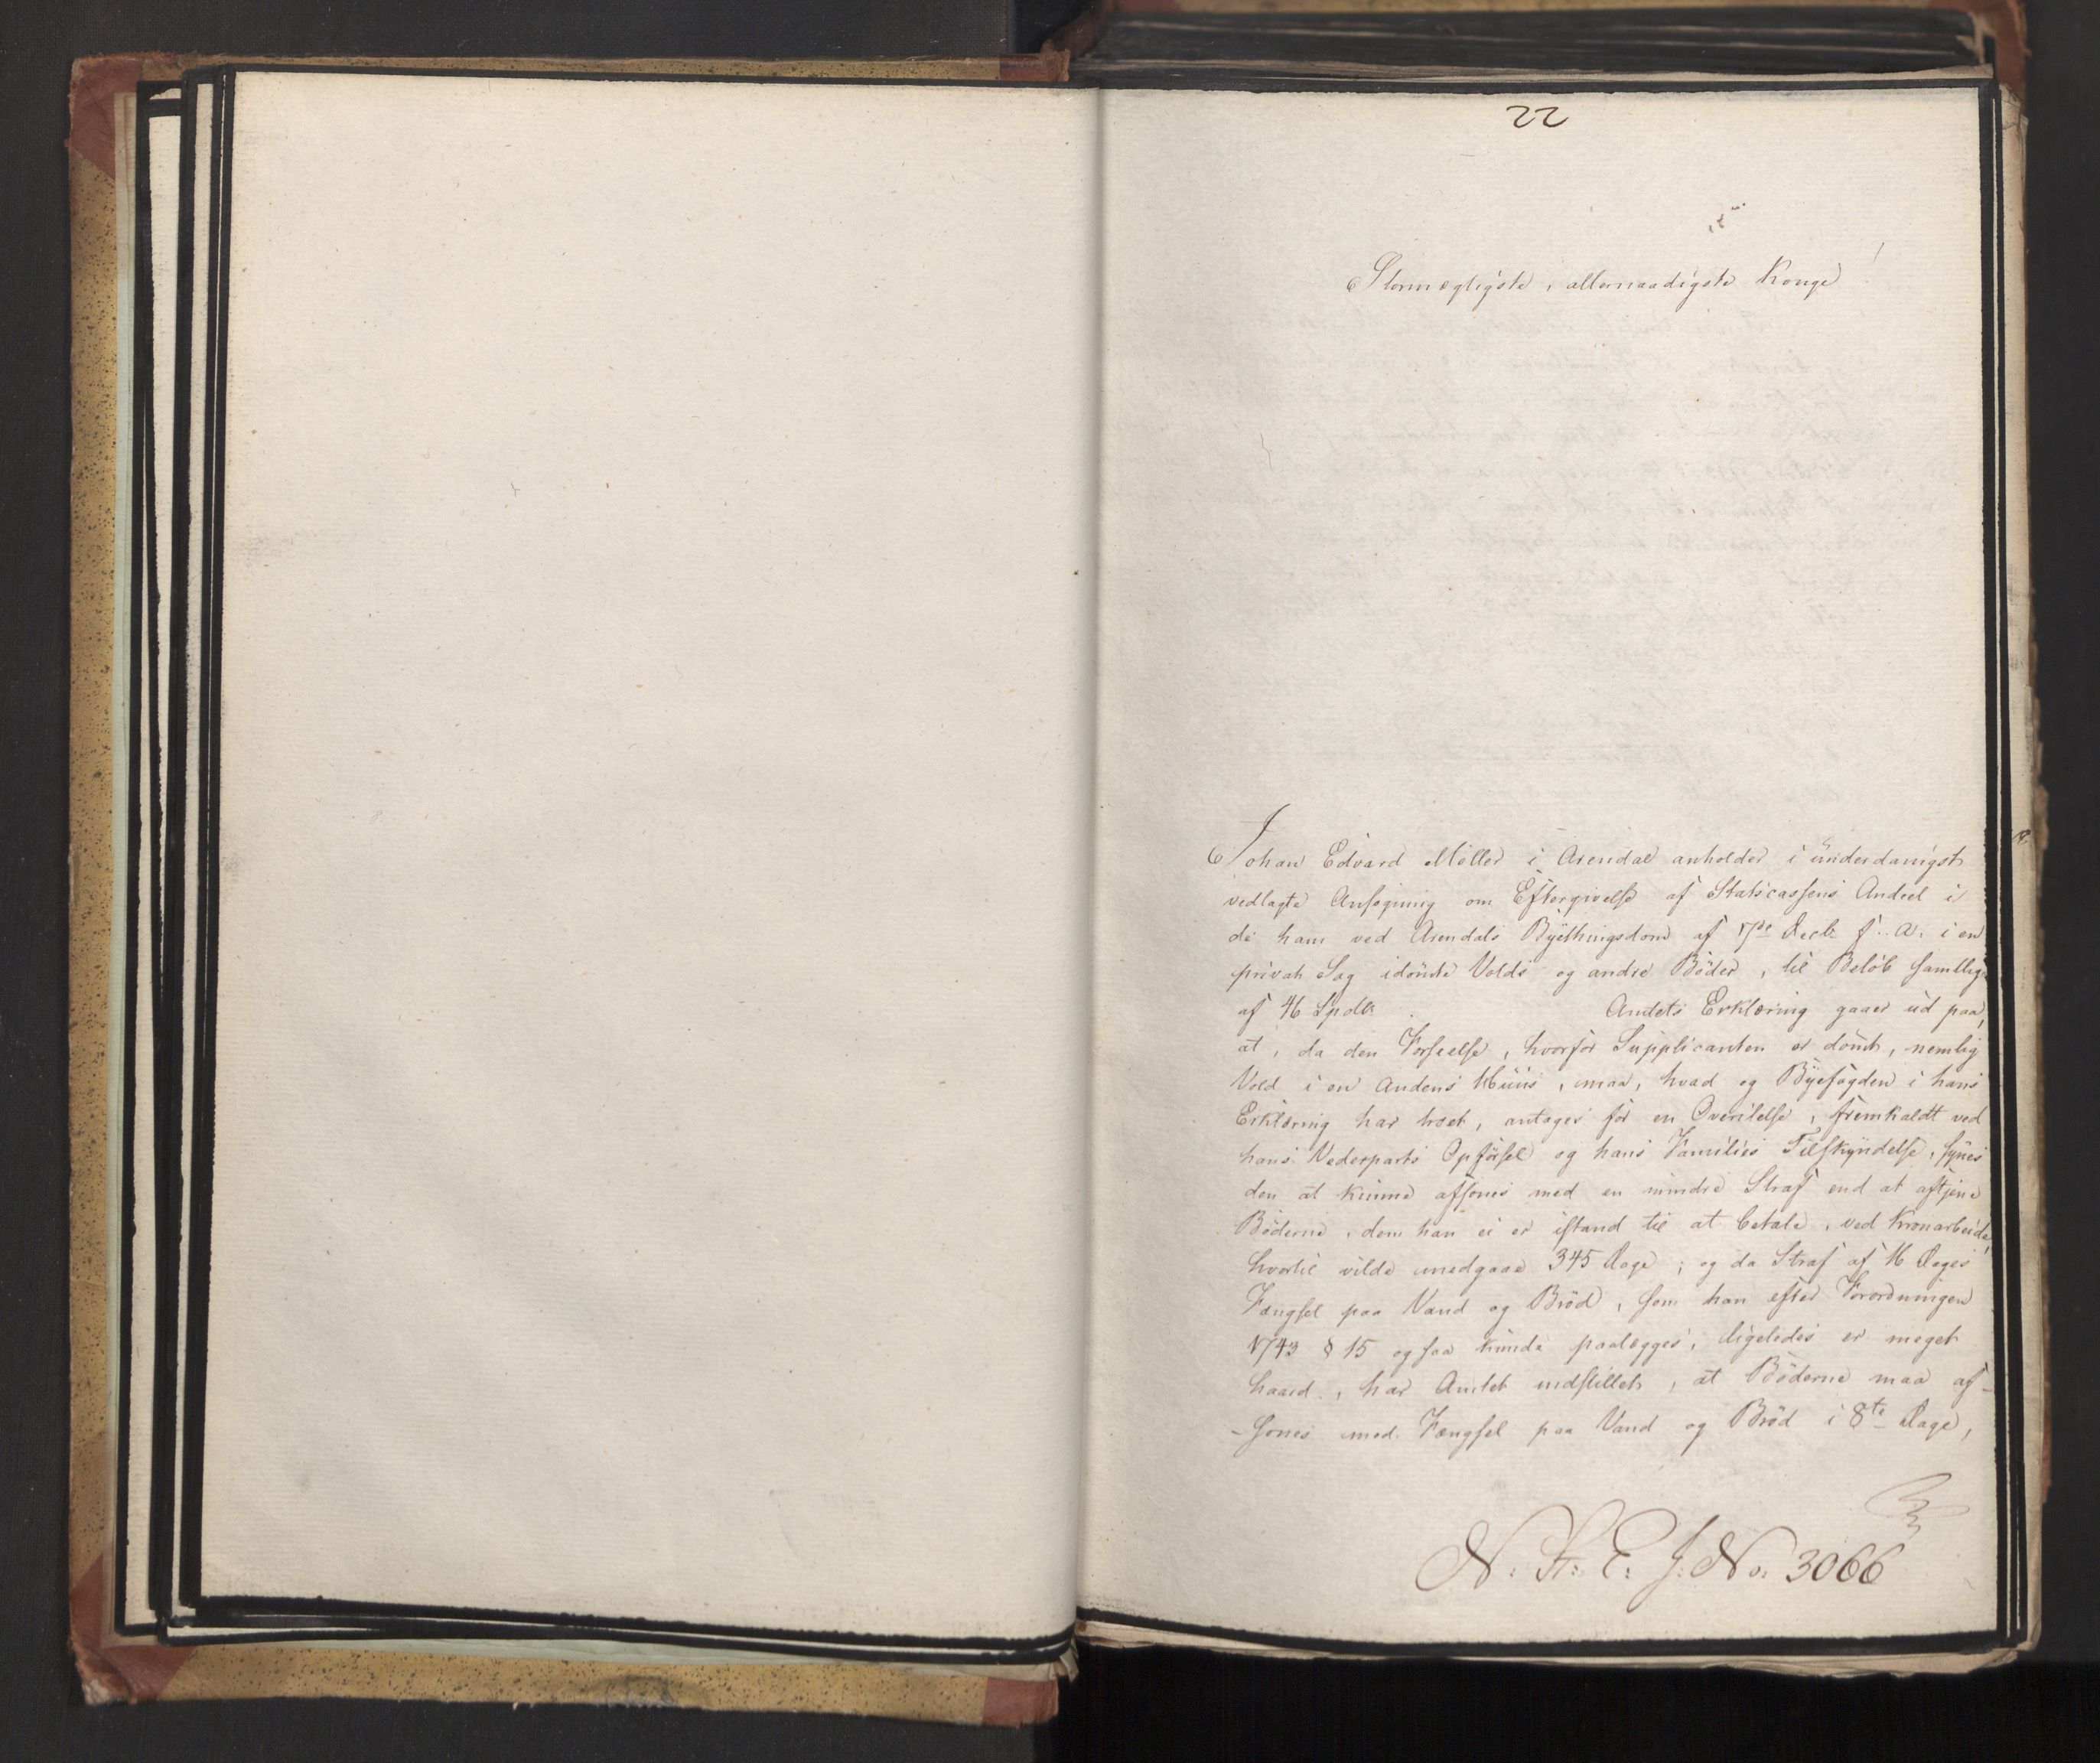 22
Stormægtigste, allernaadigste Konge!
Johan Edvard Møller i Arendal anholder i underdanigst
vedlagte Ansøgning om Eftergivelse af Statscassens Andeel i
de ham ved Arendals Byethingsdom af 17de Decb: f: A: i en
privat Sag idømte Volds og andre Bøder, til Beløb samtlige
af 46 Spdlr. Amtets Erklæring gaaer ud paa,
at, da den Forseelse, hvorfor Supplicanten er dømt, nemlig
Vold i en Andens Huus, maa, hvad og Byefogden i hans
Erklæring har troet, antages for en Overilelse, fremkaldt ved
hans Vederparts Opførsel og hans Families Tilskyndelse, synes
den at kunne afsones med en mindre Straf end at aftjene
Bøderne, dem han ei er istand til at betale, ved Kronarbeide,
hvortil vilde medgaae 345 Dage; og da Straf af 16 Dages
Fængsel paa Vand og Brød, som han efter Forordningen
1743 § 15 ogsaa kunde paalægges, ligeledes er meget
haard, har Amtet indstillet, at Bøderne maa af-
-sones med Fængsel paa Vand og Brød i 8te Dage,
N. St: C. J. No: 3066